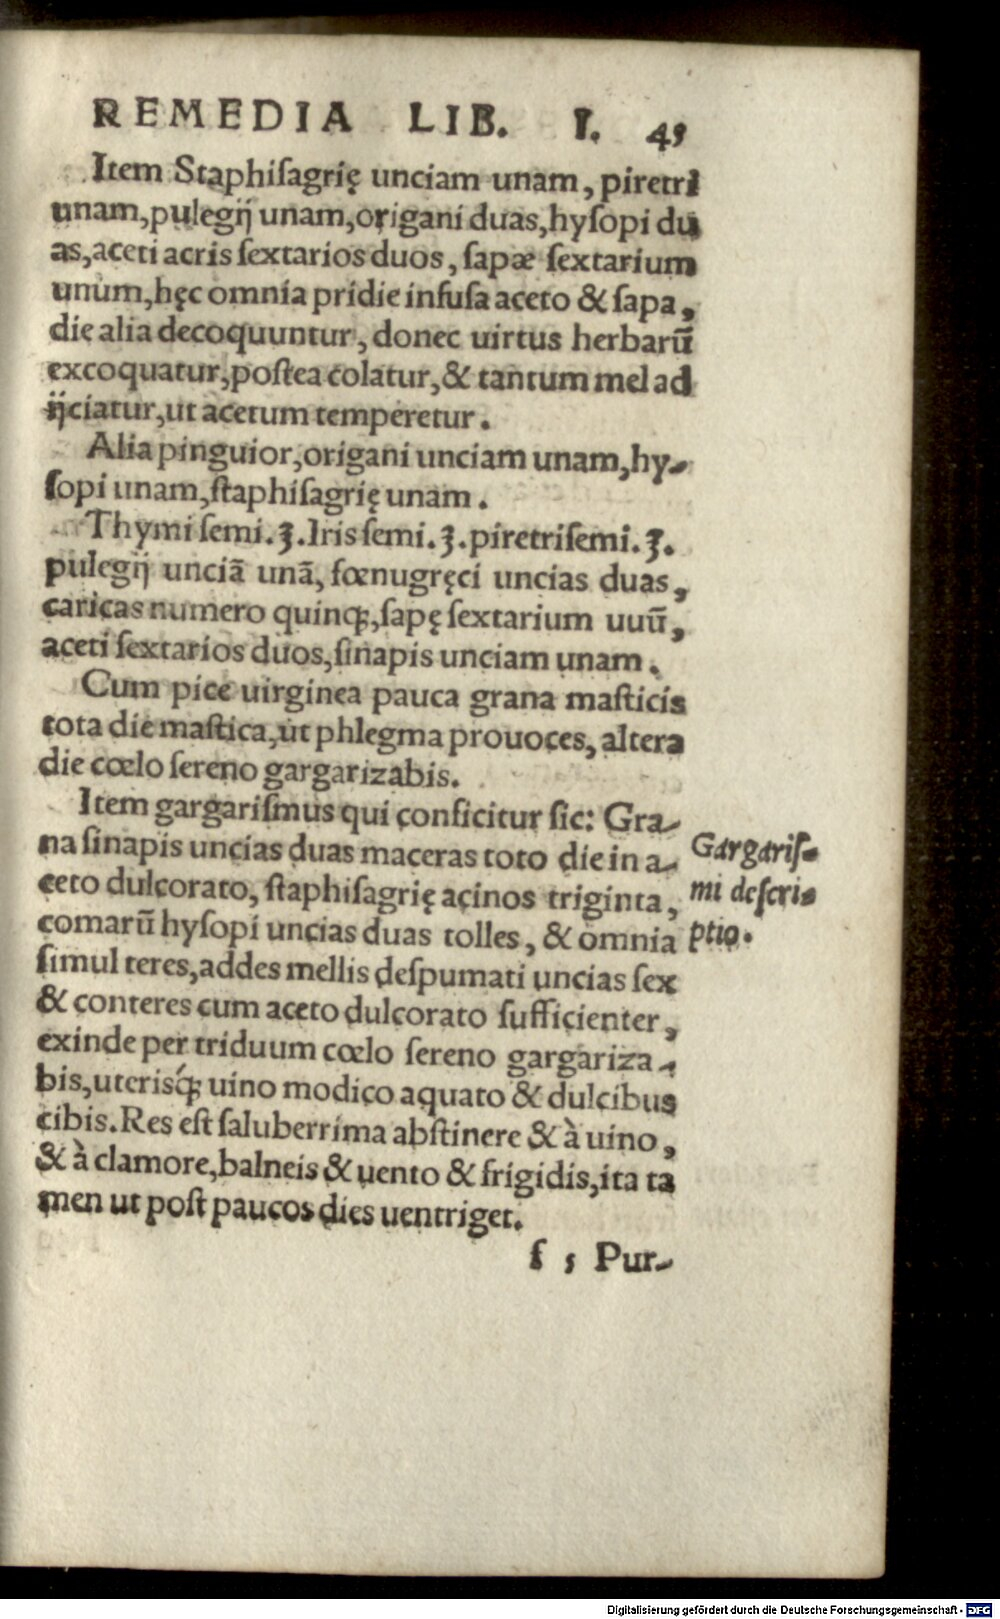 REMEDIA LIB. I. 49
Item Staphiſagrię unciam unam, piretri
unam,pulegij unam,origani duas,hyſopi du
as,aceti acris ſextarios duos, ſapæ ſextarium
unum,hęc omnia pridie infuſa aceto & ſapa,
die alia decoquuntur, donec uirtus herbarũ
excoquatur,poſtea colatur,& tantum mel ad
ijciatur,ut acetum temperetur.
Alia pinguior,origani unciam unam,hy-
ſopi unam,ſtaphiſagrię unam.
Thymi ſemi.ʒ.Iris ſemi.ʒ.piretri ſemi.ʒ.
pulegij unciã unã, fœnugręci uncias duas,
caricas numero quinqꝫ,ſapę ſextarium uuũ,
aceti ſextarios duos,ſinapis unciam unam.
Cum pice uirginea pauca grana maſticis
tota die maſtica,ut phlegma prouoces, altera
die cœlo ſereno gargarizabis.
Item gargariſmus qui conficitur ſic: Gra-
na ſinapis uncias duas maceras toto die in a-
ceto dulcorato, ſtaphiſagrię acinos triginta,
comarũ hyſopi uncias duas tolles, & omnia
ſimul teres,addes mellis deſpumati uncias ſex
& conteres cum aceto dulcorato ſufficienter,
exinde per triduum cœlo ſereno gargariza-
bis,uterisq́ꝫ uino modico aquato & dulcibus
cibis.Res eſt ſaluberrima abſtinere & à uino,
& à clamore,balneis & uento & frigidis,ita ta
men ut poſt paucos dies uentriget.
f 5 Pur-
Gargariſ-
mi deſcri-
ptio.
Digitalisierung gefördert durch die Deutsche Forschungsgemeinschaft - DFG